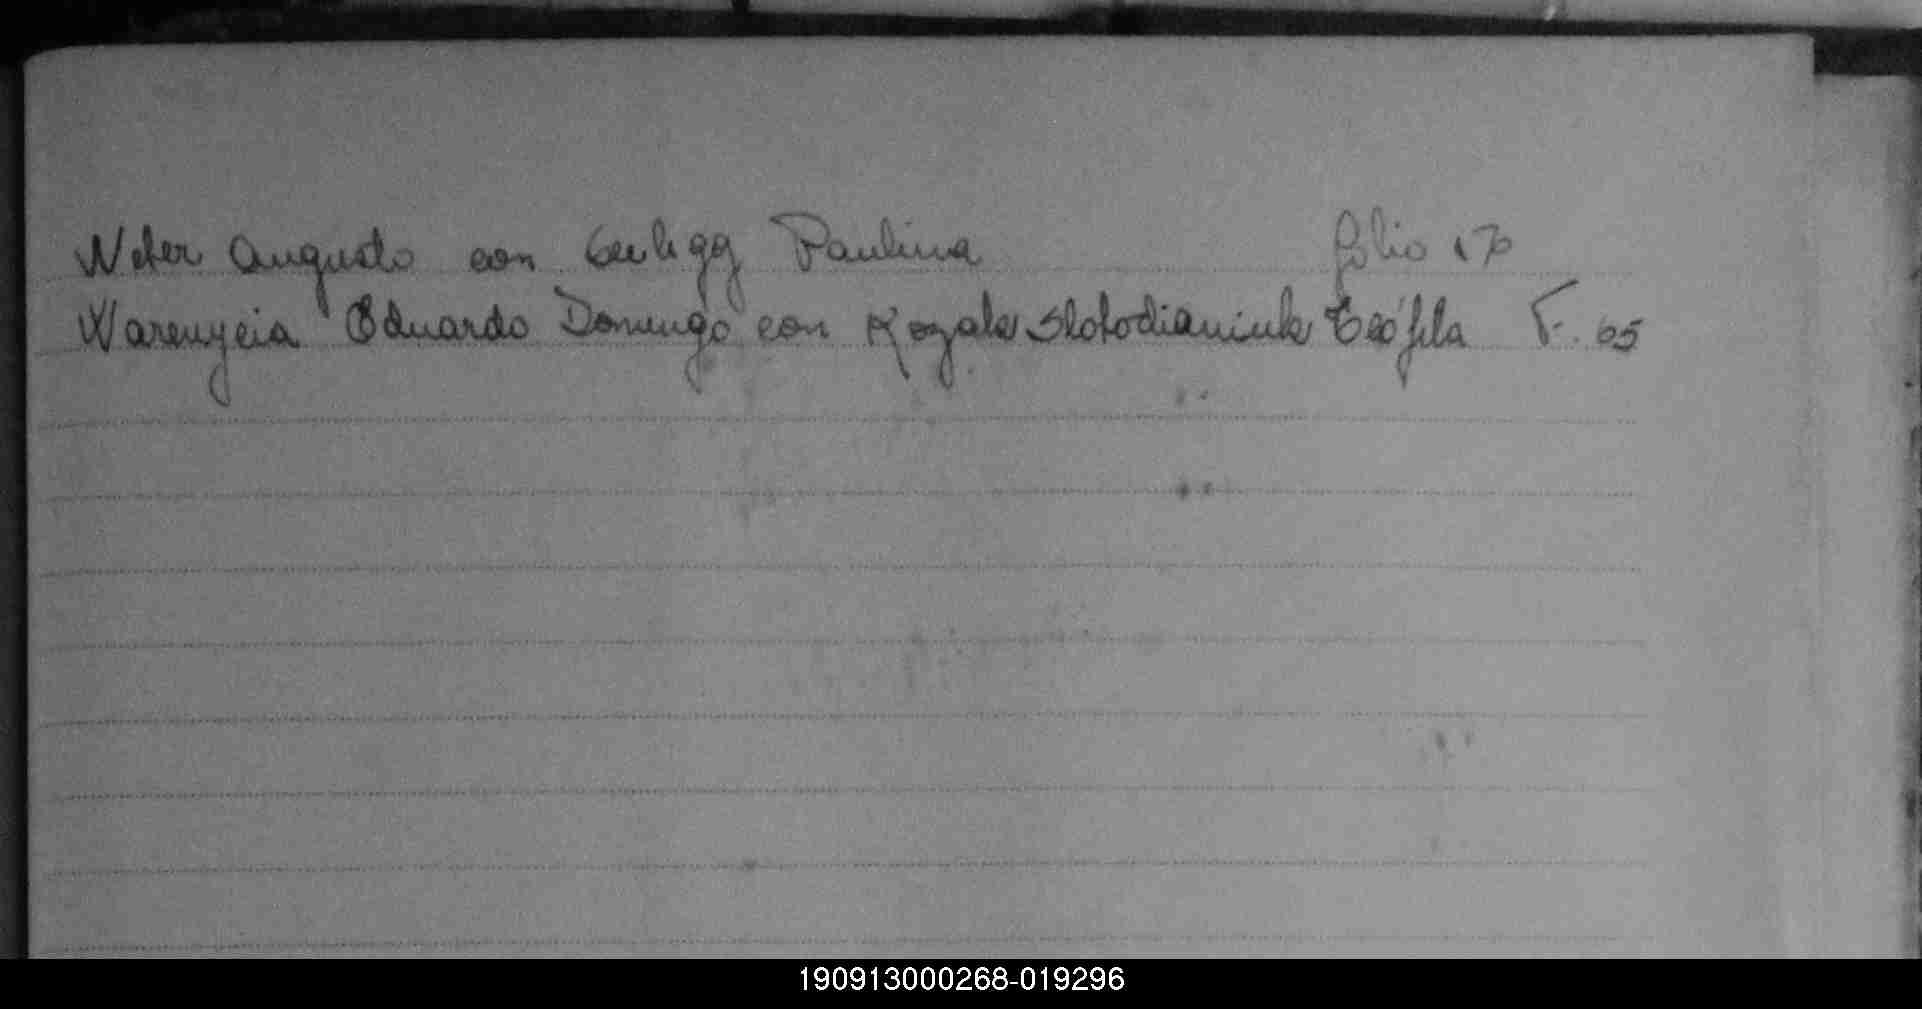 Neter Augusto con Paulina folio 17
Warenycia Eduardo Domingo con Kozak Slotodianiuk Teófila F. 65
190913000268-019296